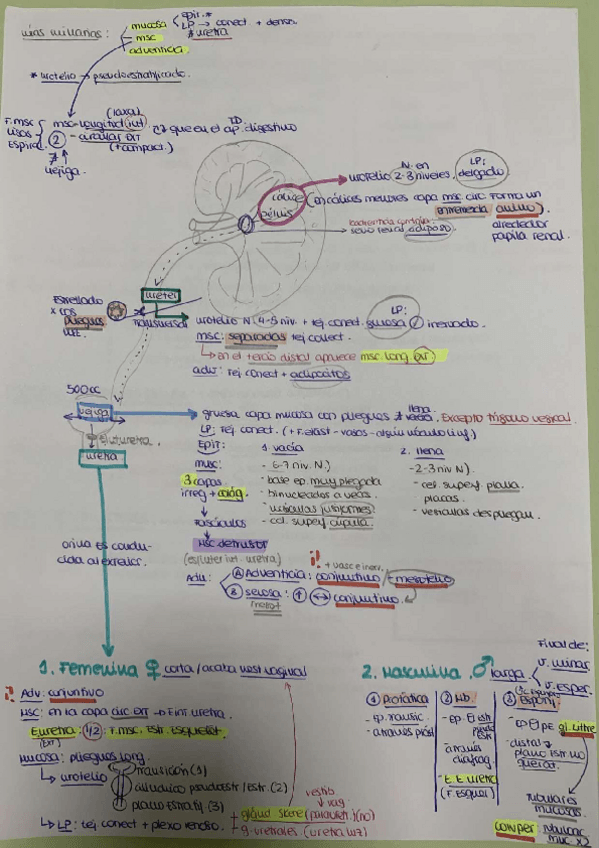 vías urinarias : mucosa epit.*
LP → conect + densn.
msc * uretra
adventicia.
* urotelio → pseudoestratificado.
F. msc lisos Espiral
msc - longitud (int) (luxal)
- circulas ext (+ compact.)
que en el ap. digestivo TD
2
≠ vejiga.
urotelio 2-3 niveles. N. en
LP: delgado
cálices (en cálices menores capa msc circ forma un
pélvis
entramado anillo).
alrededor papila renal.
seno renal adiposo
Estrellado x los pliegues
ureter
transversal
urotelio N (4-5 niv. + tej conect. gruesa inervado.
LP:
msc: separadas tej colect.
→ en el tercio distal aparece msc. long. ext
adv: Tej conect + adipocitos
500cc
vejiga
gruesa capa mucosa con pliegues ≠ llena vacía. Excepto trígono vesical.
LP: Tej conect. (+ F. elast - vasos - algún nódulo linf.)
uretra
EPIT:
1. vacía
2. llena
msc:
- 6-7 niv. N.)
- 2-3 niv N).
3 capas
- base ep. muy plegada
- cel. superf plana.
irreg + colág.
- binucleados a veces.
placas.
- vesículas fusiformes
- vesículas despliegan.
Fascículos
- cel. superf cúpula.
MSC detrusor
(esfínter int. uretra)
+ vasc e inerv.
Adv: A Adventicia: conjuntivo - mesotelio
B serosa: conjuntivo.
orina es conducida al exterior.
1. Femenina ♀ corta / acaba vest vaginal
Adv: conjuntivo
MSC: en la capa circ ext → E int uretra.
E uretra: 1/2: F. msc. Estr. Esquelét
(Ext)
Mucosa: pliegues long.
→ urotelio
transición (1)
cilíndrico pseudoestr/estr. (2)
plano estratif. (3)
→ LP: tej conect + plexo venoso.
vestib vag
+ gland Skene (parauretr.) (no)
g. uretrales (uretra luz)
2. Masculina ♂ larga.
Final de:
v. urinar
v. esper.
1 Prostática
2 Mb.
3 Esponj
- ep. transic.
- a través próst
- ep estr
pseudo estr
- a través diafrag
- E. E uretra
(F. Esquel)
- ep PE gl. Littre
- distal → plano Estr no querat.
tubulares mucosas.
cowper: tubuloalv muc x2